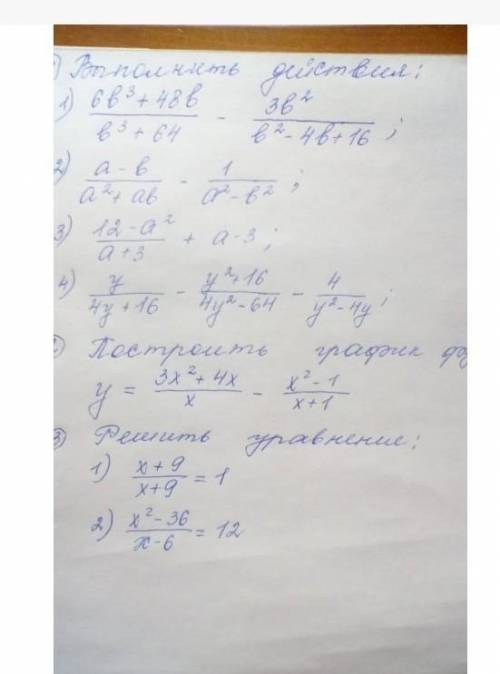 ) Выполнить действия:
1) (6b³ + 48b)/(b³ + 64) - 3b²/(b² - 4b + 16);
2) (a - b)/(a² + ab) - 1/(a² - b²);
3) (12 - a²)/(a + 3) + a - 3;
4) y/(4y + 16) - (y² + 16)/(4y² - 64) - 4/(y² - 4y);
Построить график
y = (3x² + 4x)/x - (x² - 1)/(x + 1)
③ Решить уравнение:
1) (x + 9)/(x + 9) = 1
2) (x² - 36)/(x - 6) = 12